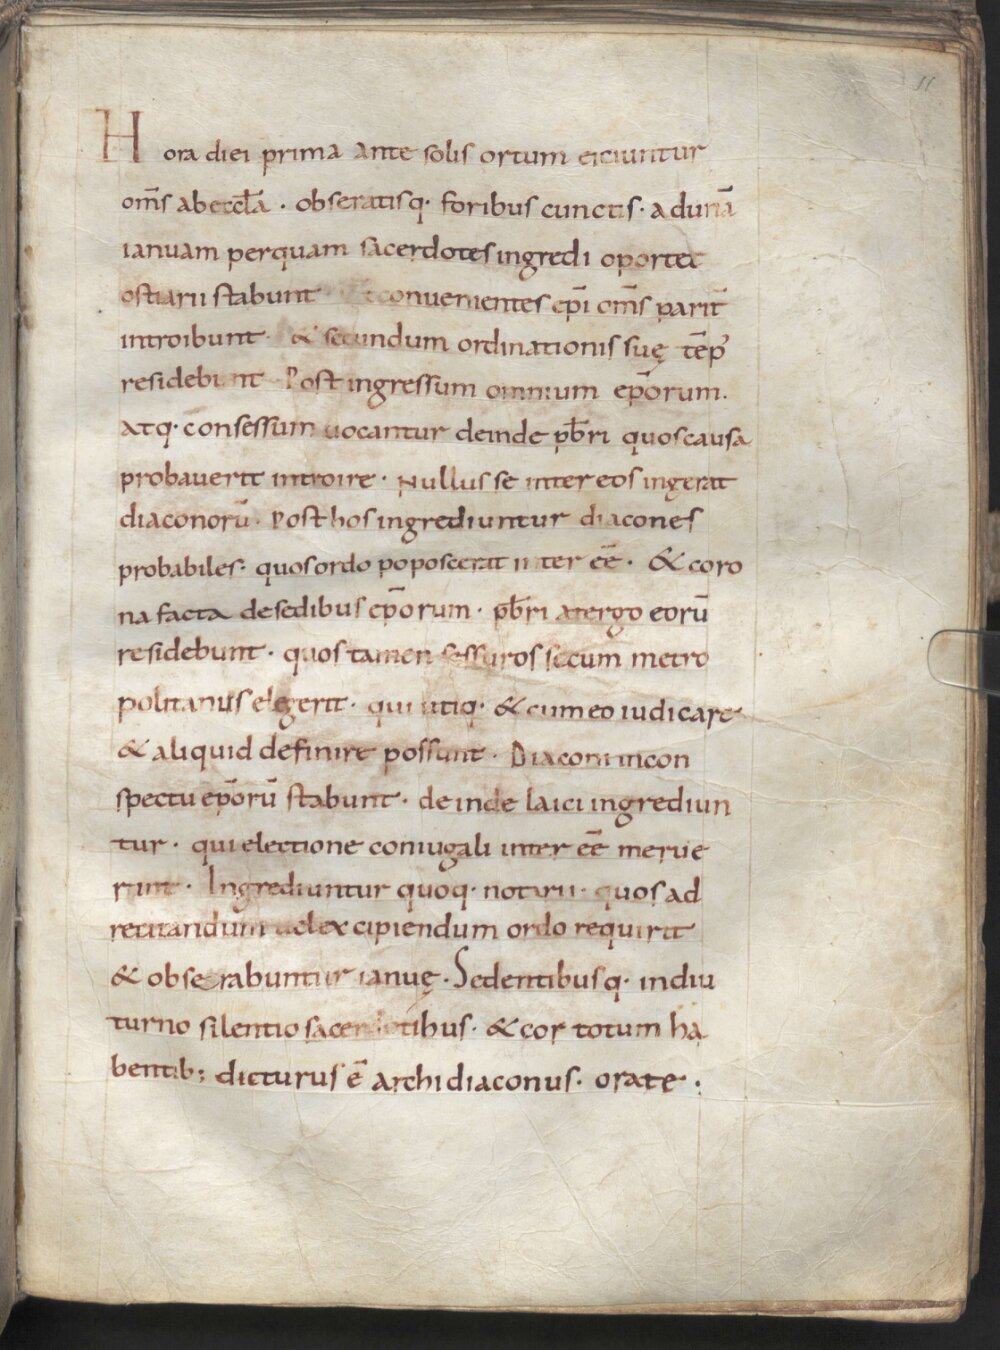 11
Hora diei prima ante solis ortum eiciuntur
om̄s ab eccl̄a · obseratisq· foribus cunctis · ad unā
ianuam per quam sacerdotes ingredi oportet
ostiarii stabunt · Et conuenientes ep̄i om̄s parit̄
introibunt · & secundum ordinationis suę tēp̄
residebunt · Post ingressum omnium ep̄orum ·
atq· consessum uocantur deinde pb̄ri quos causa
probauerit introire · Nullus se inter eos ingerat
diaconorū · Post hos ingrediuntur diacones
probabiles · quos ordo poposcerat inter eē · & coro
na facta de sedibus ep̄orum · pb̄ri a tergo eorū
residebunt · quos tamen sessuros secum metro
politanus elegerit · qui utiq· & cum eo iudicare
& aliquid definire possunt · Diaconi in con
spectu ep̄orū stabunt · deinde laici ingrediun
tur · qui electione coniugali inter eē merue
runt · Ingrediuntur quoq· notarii · quos ad
recitandum uel excipiendum ordo requirit
& obserabuntur ianuę · Sedentibusq· in diu
turno silentio sacerdotibus · & cor totum ha
bentib; dicturus ē archidiaconus · orate ·